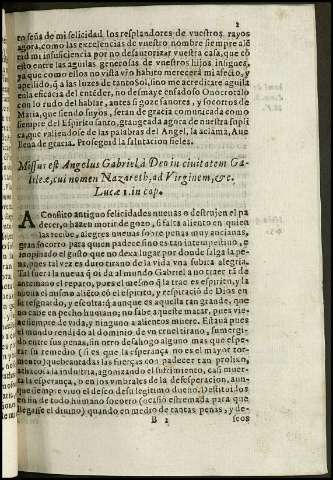 2
en señas de mi felicidad, los resplandores de vuestros rayos
agora, como las excelencias de vuestro nombre siempre alẽ
mi insuficiencia por no desautorizar vuestra casa, que có
esto entre las aguilas generosas de vuestros hijos insignes,
ya que como ellos no vista vn habito merecerá mi afecto, y
apellido, q̃ a las luzes de tanto Sol, sino me acreditare aguila
en la eficacia del entẽder, no desmaye ensado Onocrotalo
con lo rudo del hablar, antes si goze fauores, y socorros de
Maria, que siendo suyos, seran de gracia comunicada como
siempre del Espiritu santo, grangeada agora de nuestra supli
ca que valiendose de las palabras del Angel, la aclama, Aue
llena de gracia. Proseguid la salutacion fieles.
Missus est Angelus Gabriel, à Deo in ciuitatem Ga-
lileæ, cui nomen Nazareth, ad Virginem, &c.
Lucæ 1. in cap.
A Conflito antiguo felicidades nueuas o destruyen el pa
decer, o hazen morir de gozo, si falta aliento en quien
las recibe, alegres nueuas sobre penas muy ancianas,
gran socorro para quien padece sino es tan intempestiuo, e
inopinado el gusto que no dexa lugar por donde salga la pe-
na, pues tal vez es duro tirano de la vida vna subita alegria.
Tal fuera la nueua q̃ oi da al mundo Gabriel a no traer tã de
antemano el reparo, pues el mesmo q̃ la trae es espiritu, y la
nueua el mismo aliẽto cõ el espiritu, y respiració de Dios en
ella guardado, y escolta: q̃ aunque es aquella tan grande, que
no cabe en pecho humano; no sabe aqueste matar, pues vie
ne siempre de vida, y ninguno a alientos muere. Estaua pues
el mundo rendido al dominio de vn cruel tirano, sumergi-
do entre sus penas, sin tener desahogo alguno mas que espe-
rar su remedio (si es que la esperança no es el mayor tor-
mento) quebrantadas las fuerças con padecer tan prolixo,
la esperança, o en los vmbrales de la desesperacion, aun-
que siempre viuo el deseo de su legitimo dueño. Destituidos
en fin de todo humano socorro (ocasió estremada para que
llegasse el diuino) quando en medio de tantas penas, y de-
B 2
seos